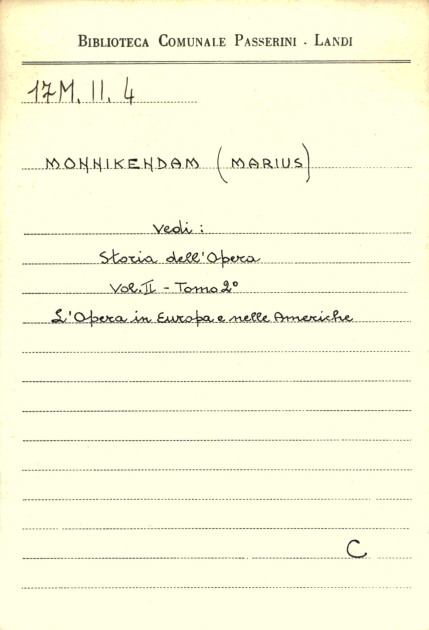 BIBLIOTECA COMUNALE PASSERINI - LANDI
17M. II. 4
MONNIKENDAM (MARIUS)
Vedi :
Storia dell'Opera
Vol. II - Tomo 2°
L'Opera in Europa e nelle Americhe
C